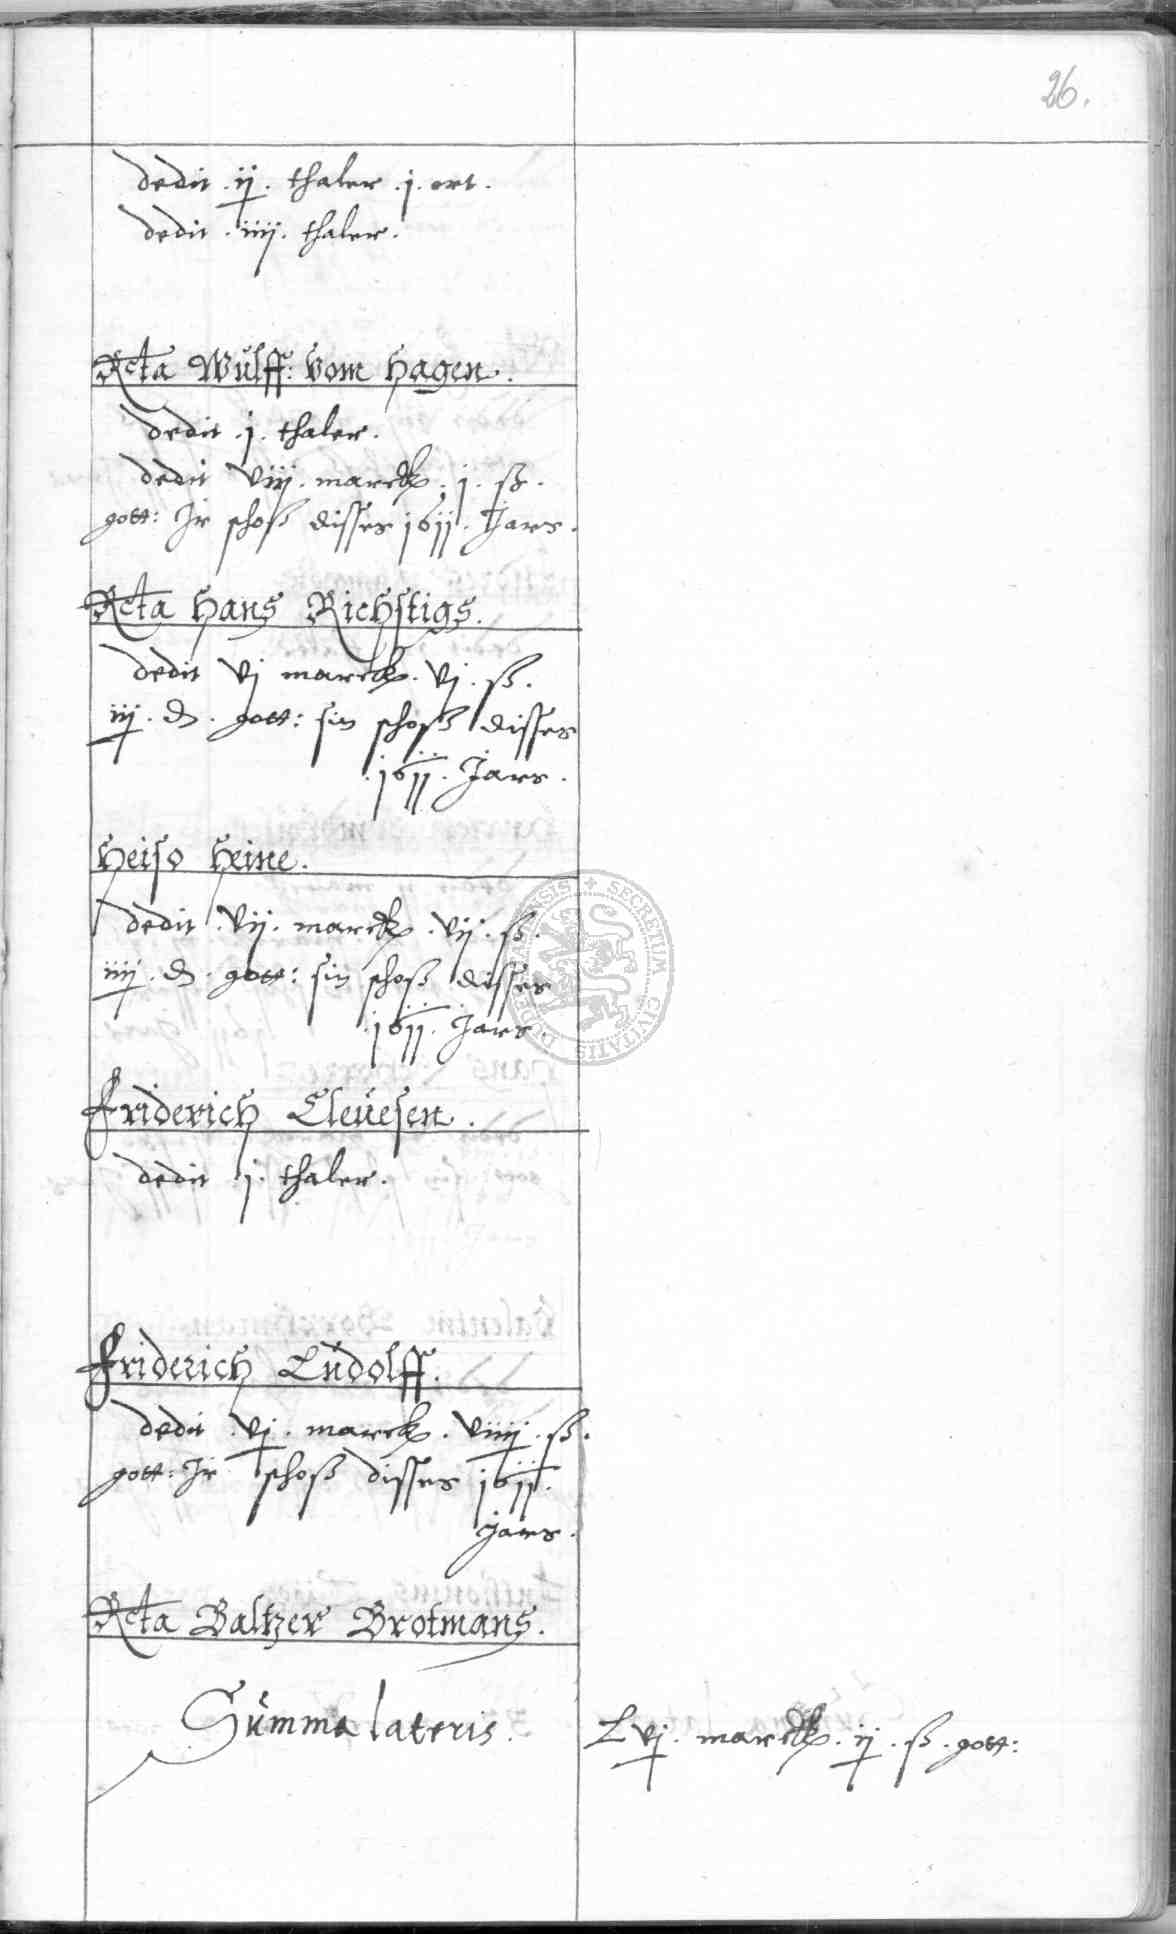 26.
dedit . ij . thaler . j . ort .
dedit . iiij . thaler .
Rcta Wulff: vom Hagen .
dedit . j . thaler .
dedit viij . marck . j . ß .
gott: Jr schoß disses 1611 . Jars .
Rcta Hans Richstigs .
dedit vj marck . vj . ß .
iij . d . gott: sin schoß disses
. 1611 . Jars .
Heiso Heine .
dedit . vij . marck . vij . ß .
iiij . d . gott: sin schoß disses
. 1611 . Jars .
Friderich Cleuesen .
dedit j . thaler .
Friderich Ludolff .
dedit . vj . marck . viiij . ß .
gott: Jr schoß disses 1611 .
Jars .
Rcta Baltzer Brotmans .
Summa lateris . Lvj . marck . ij . ß . gott:
SECRETUM CIVITATIS